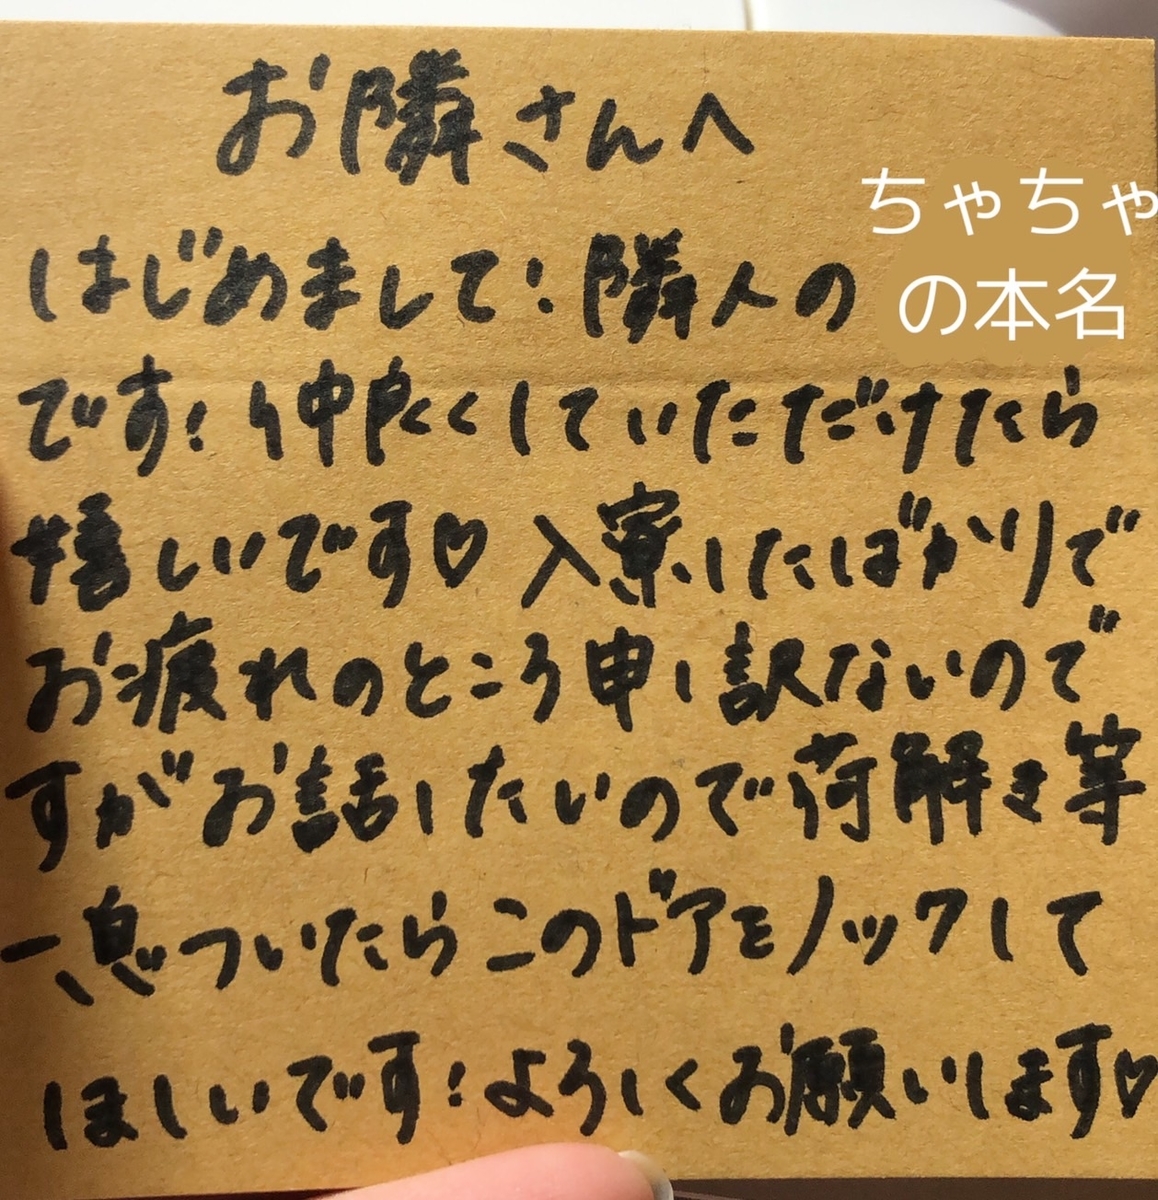 お隣さんへ
はじめまして!隣人の ちゃちゃの本名
です!仲良くしていただけたら
嬉しいです♡ 入寮したばかりで
お疲れのところ申し訳ないので
すがお話したいので荷解き等
一息ついたらこのドアをノックして
ほしいです!よろしくお願いします♡